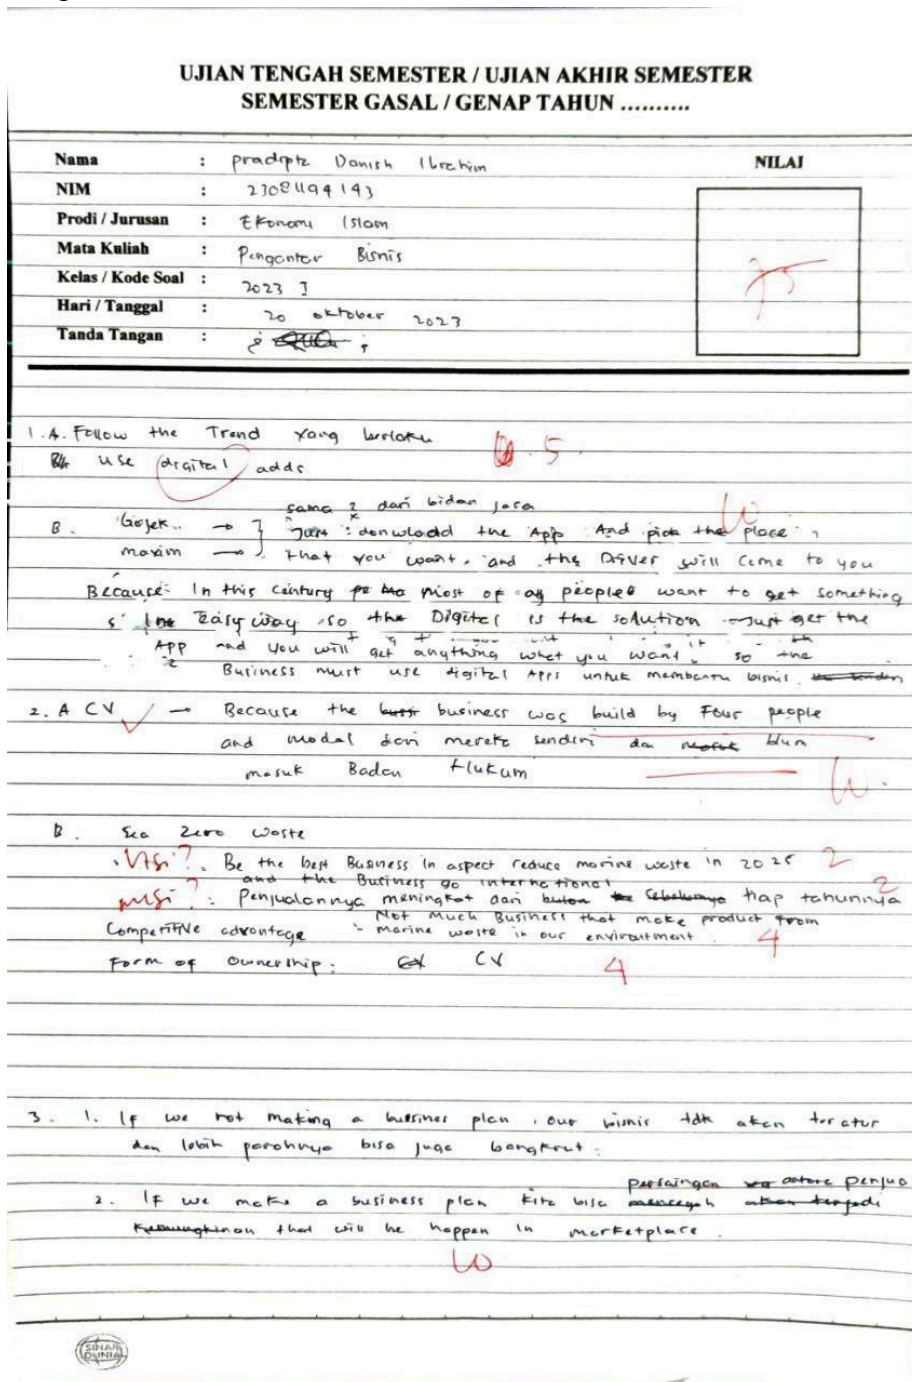 UJIAN TENGAH SEMESTER / UJIAN AKHIR SEMESTER
SEMESTER GASAL / GENAP TAHUN ..........
Nama : Pradipta Danish Ibrahim
NILAI
NIM : 2308494143
Prodi / Jurusan : Ekonomi Islam
Mata Kuliah : Pengantar Bisnis
75
Kelas / Kode Soal : 2023 I
Hari / Tanggal : 20 oktober 2023
Tanda Tangan :
1. A. Follow the Trend yang berlaku 5
use digital adds
sama2 dari bidan jasa
B. Gojek.. → Just : donwload the App And pick the place
maxim → that you want, and the Driver will come to you
Because: In this century most of people want to get something
Easy way so the Digital is the solution Just get the
App and you will get anything what you want. so the
Business must use digital Apps untuk membantu bisnis.
2. A CV → Because the business was build by Four people
and modal dari mereka sendiri dan blum
masuk Badan Hukum
B. Sea Zero Waste
Visi? . Be the best Business in aspect reduce marine waste in 2025 2
and the Business go international
misi? : Penjualannya meningkat dari tiap tahunnya 2
Not Much Business that make product from
Competitive advantage : marine waste in our envirountment. 4
Form of Ownership : CV 4
3. 1. If we not making a bussines plan, our bisnis tdk akan teratur
dan lebih parahnya bisa juga bangkrut.
persaingan antara penjua
2. If we make a business plan kita bisa
that will be happen in marketplace.
10
SINAR DUNIA